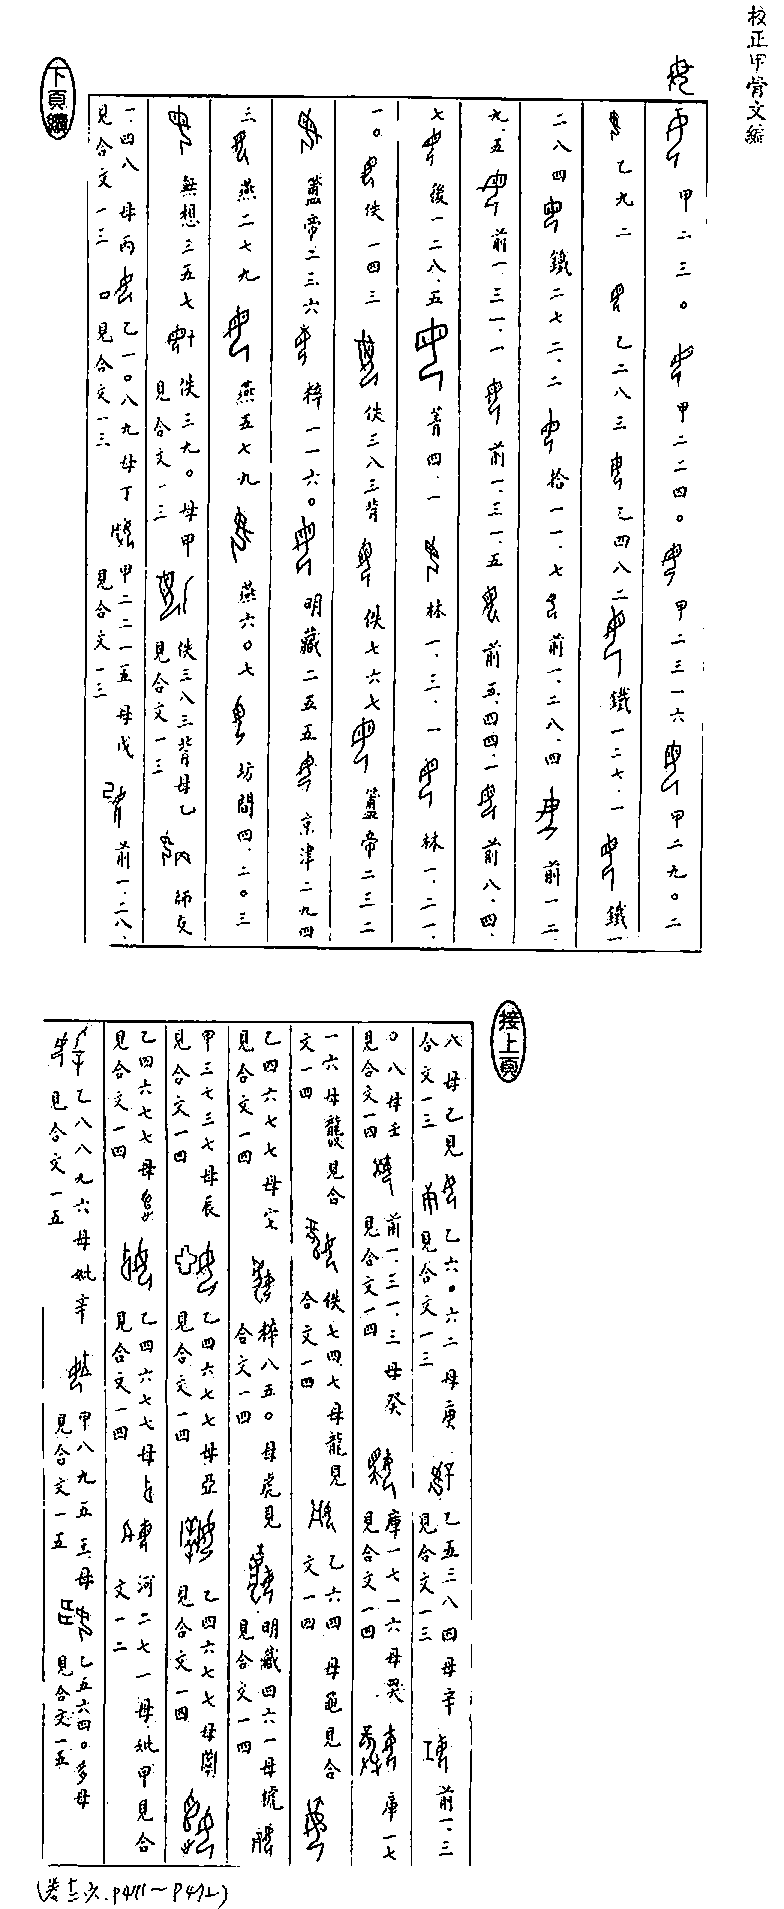 校正甲骨文編
甲二三〇 甲二二四〇 甲二三一六 甲二九〇二
乙九二 乙二八三 乙四八二 鐵一二七.一 鐵一
二八四 鐵二七二.二 拾一一.七 前一.二八.四 前一二.
九.五 前一.三一.一 前一.三一.五 前五.四四.一 前八.四.
七 後一二八.五 菁四.一 林一.三.一 林一.二一.
一〇 佚一四三 佚三八三背 佚七六七 簠帝二三二
簠帝二三六 粹一一六〇 明藏二五五 京津二九四
三 燕二七九 燕五七九 燕六〇七 坊間四.二〇三
無想三五七 佚三九〇母甲見合文一三 佚三八三背母乙見合文一三 師友
一.四八 母丙見合文一三 乙一〇八九母丁見合文一三 甲二二一五母戊見合文一三 前一.二八.
下頁續
接上頁
八 母己見合文一三 乙六〇六二母庚見合文一三 乙五三八四母辛見合文一三 前一.三
〇.八母壬見合文一四 前一.三一.三母癸見合文一四 庫一七一六母 見合文一四 庫一七
一六母 見合文一四 佚七四七母龍見合文一四 乙六四 母 見合文一四
乙四六七七母 見合文一四 粹八五〇母虎見合文一四 明藏四六一母 見合文一四
甲三七三七母辰見合文一四 乙四六七七母亞見合文一四 乙四六七七母 見合文一四
乙四六七七母 見合文一四 乙四六七七母 見合文一四 河二七一母妣甲見合文一二
乙八八九六母妣辛見合文一五 甲八九五王母見合文一五 乙五六四〇多母見合文一五
(卷十二.六.P471～P472)